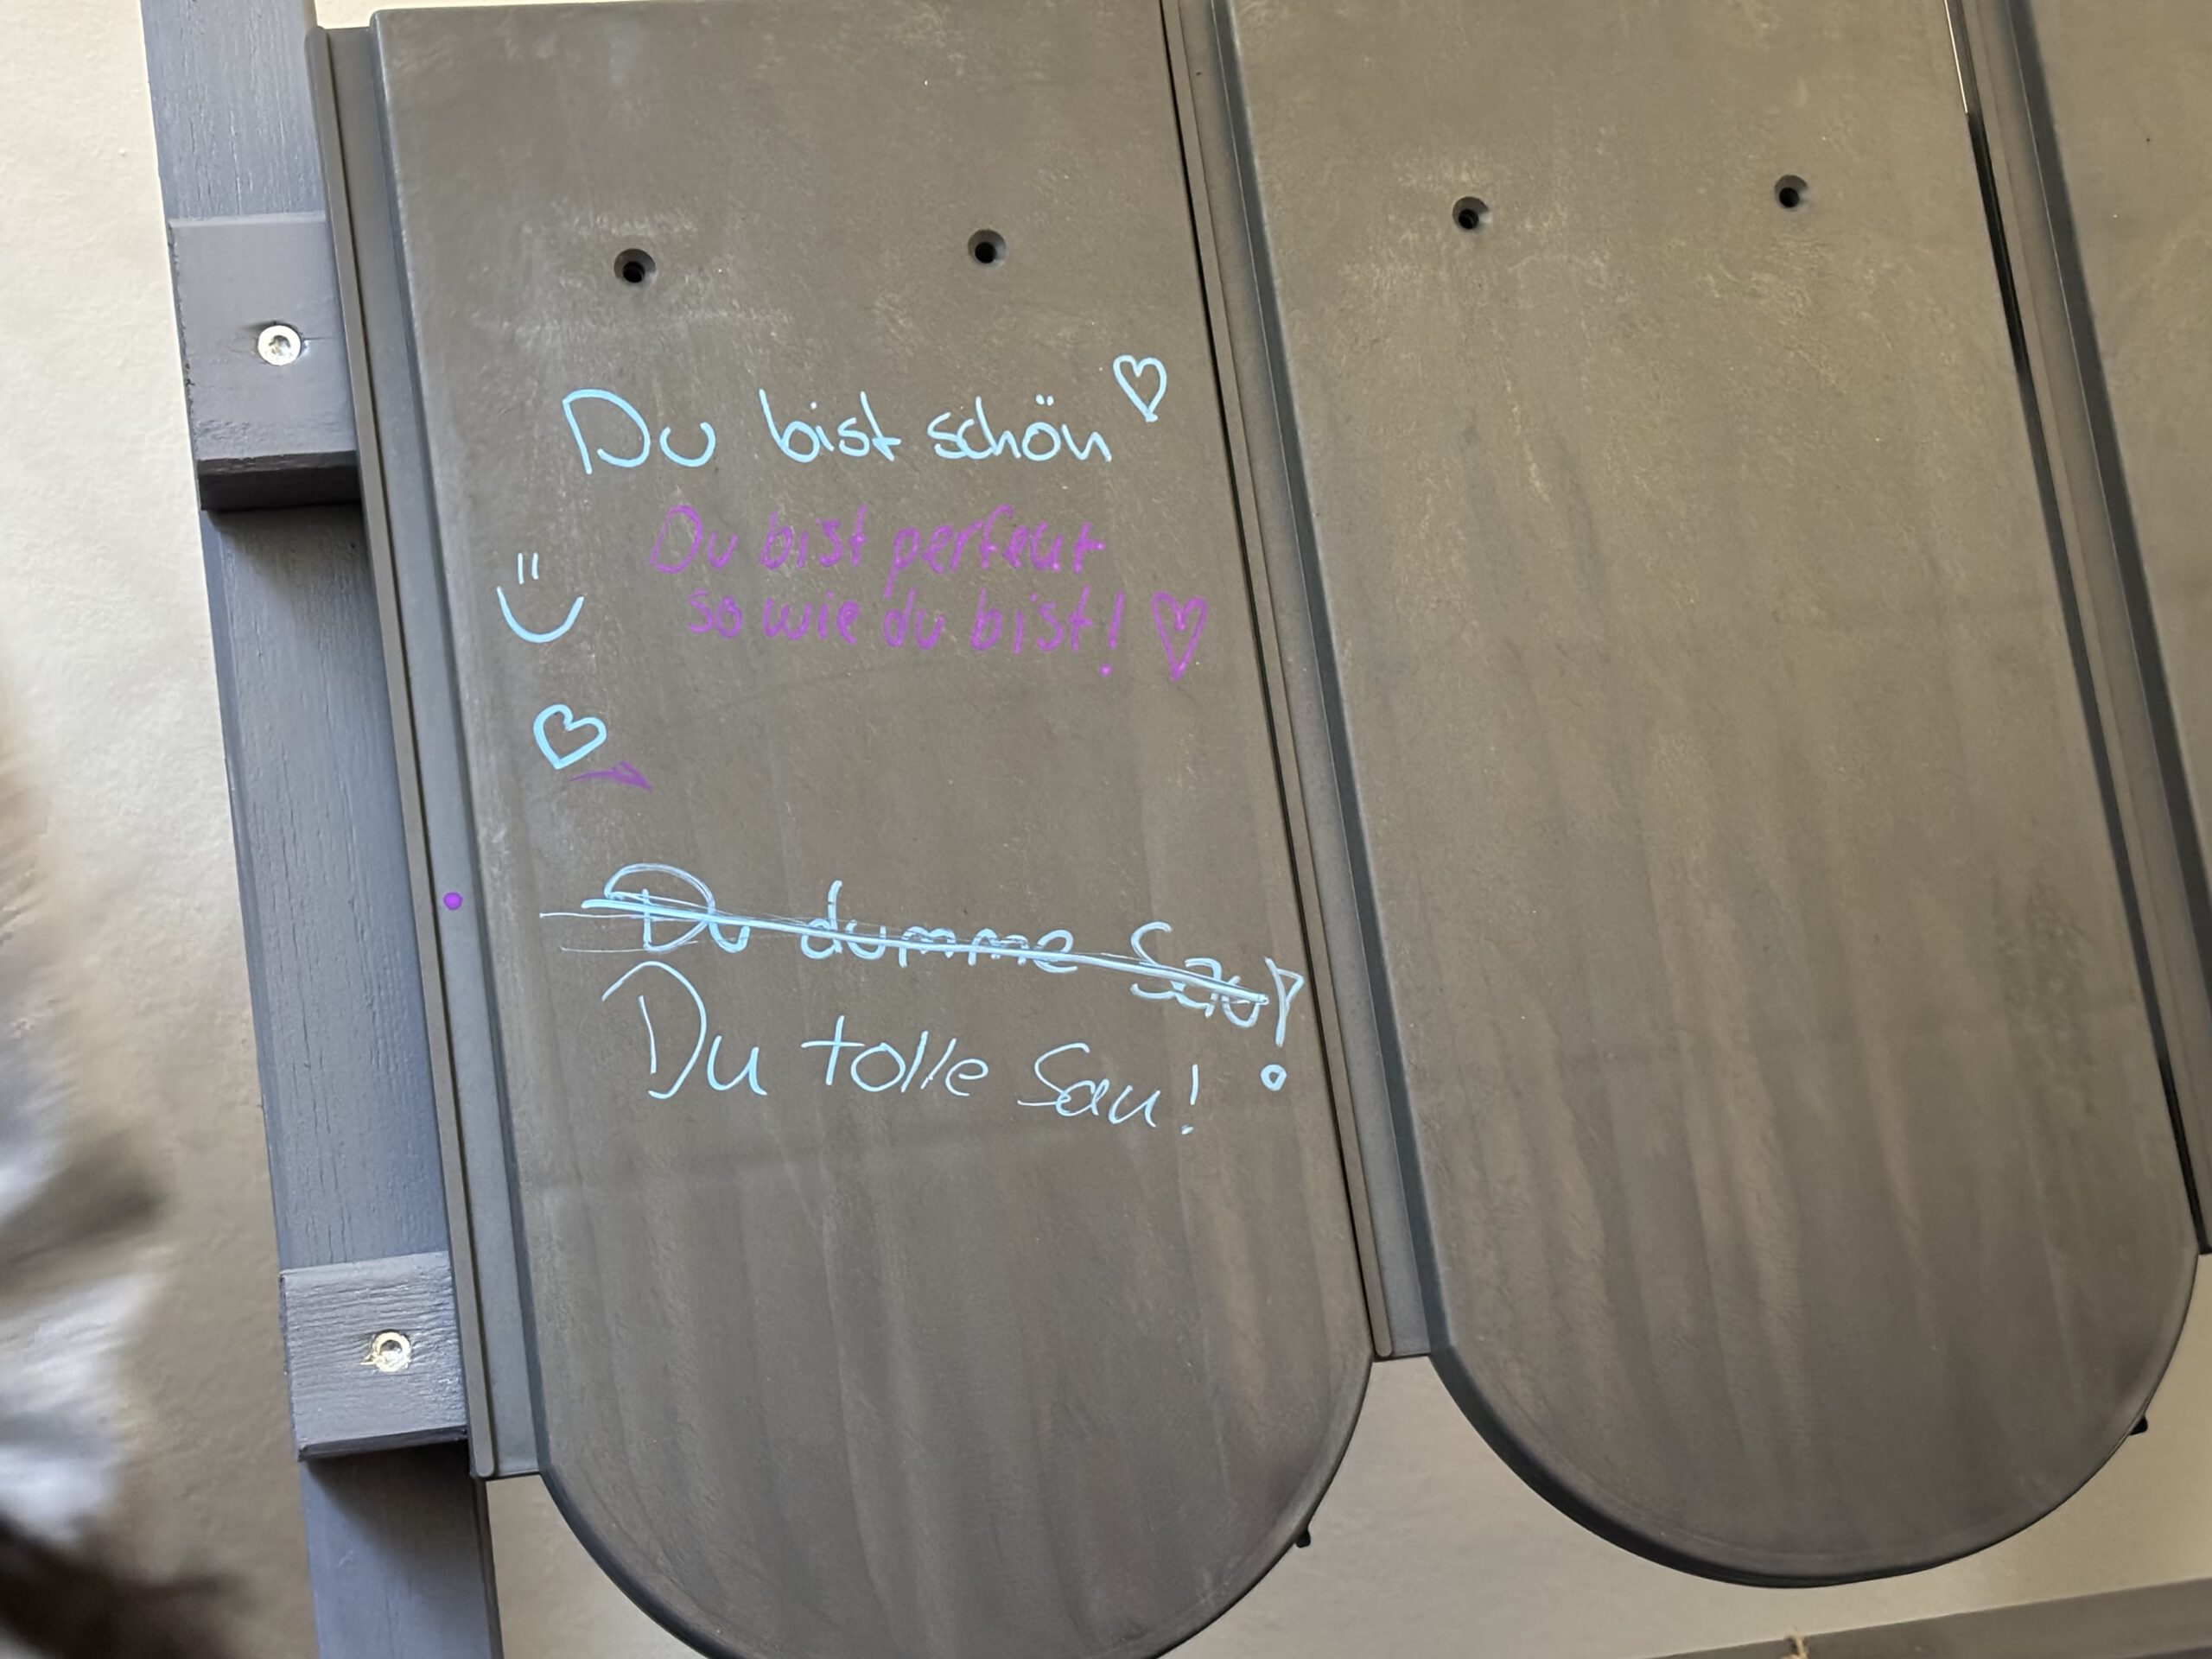 Du bist schön ♡
Du bist perfekt
so wie du bist! ♡
Du dumme Sau!
Du tolle Sau!